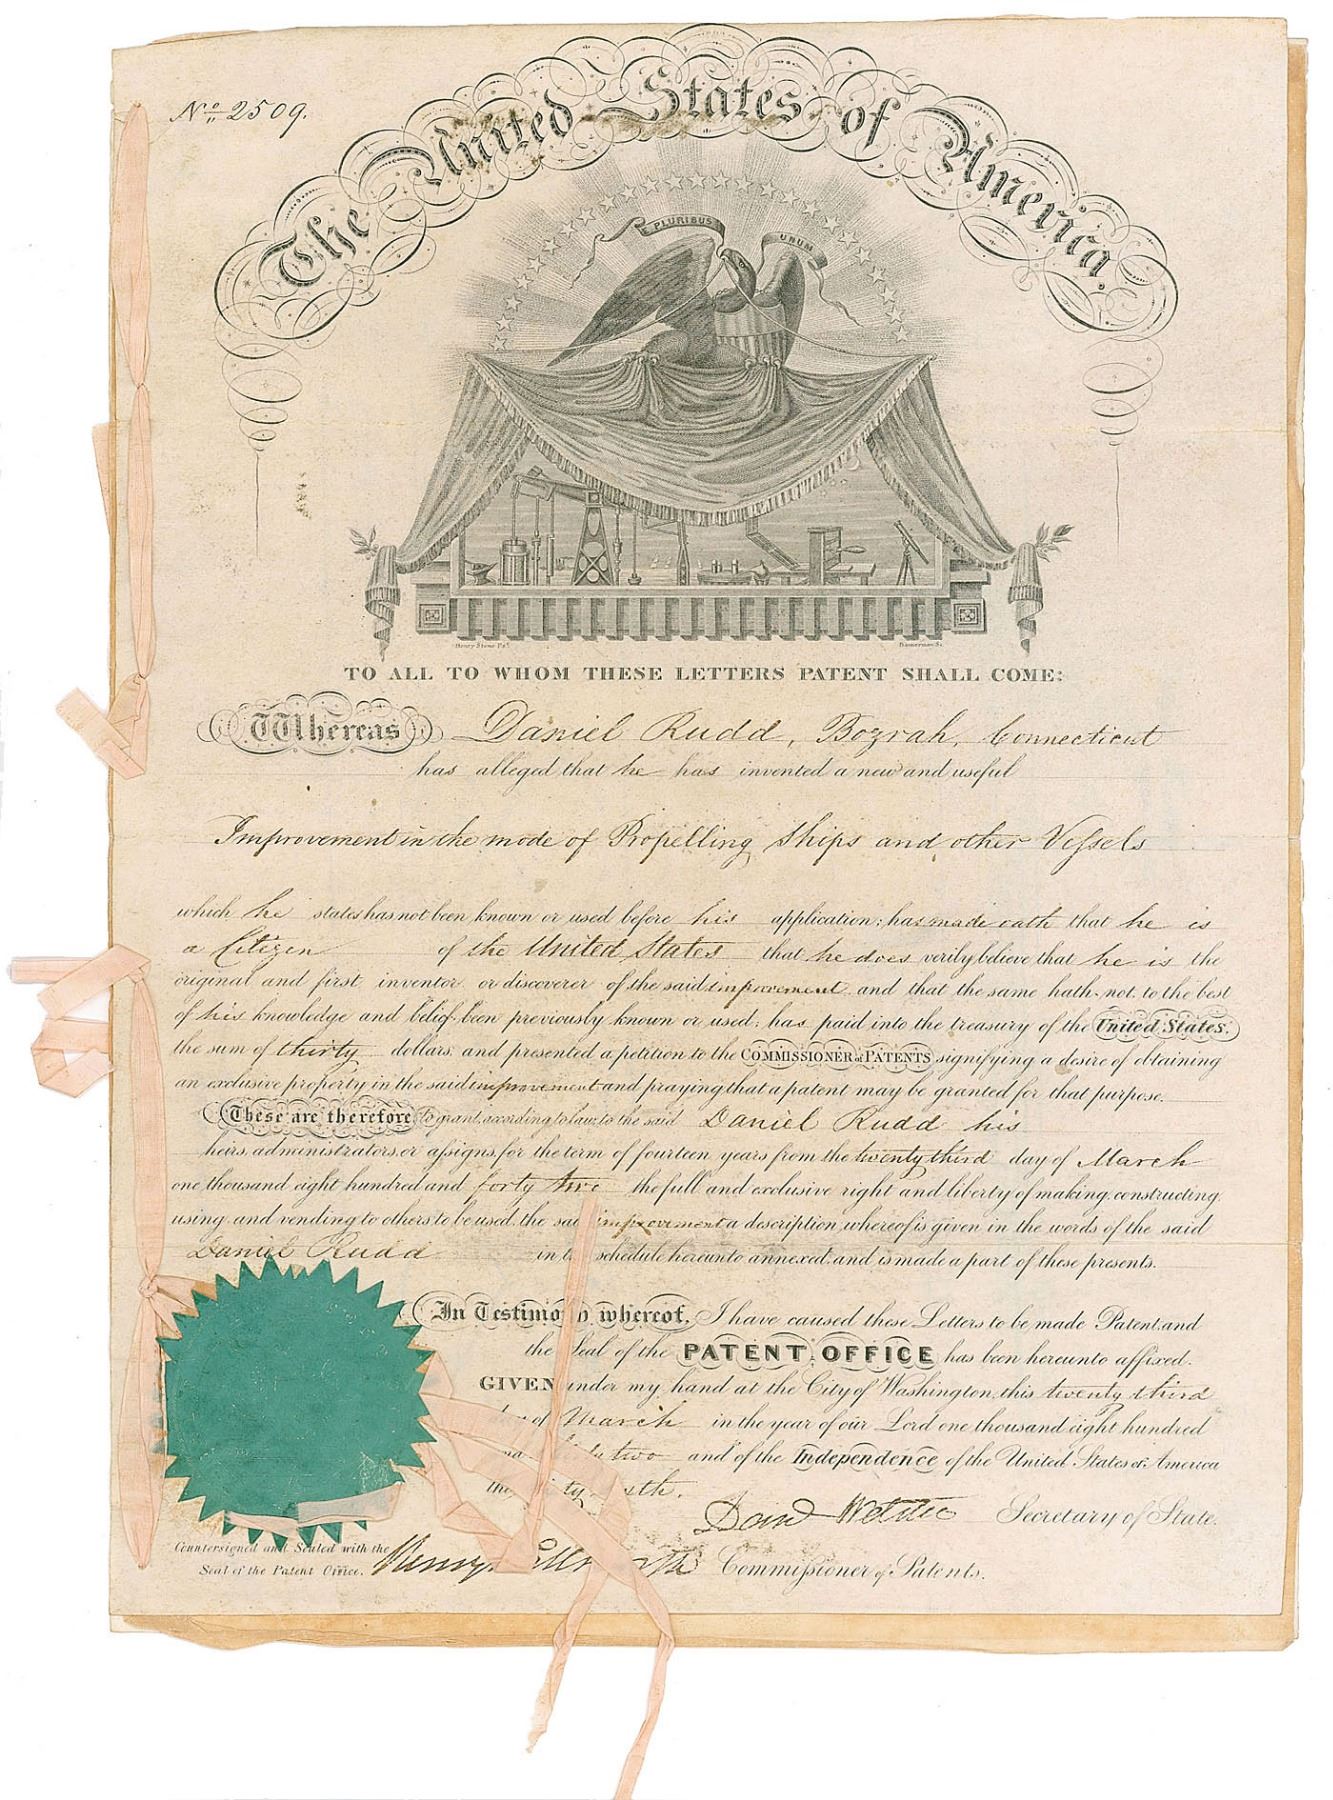 No. 2509.
The United States of America
E PLURIBUS UNUM
TO ALL TO WHOM THESE LETTERS PATENT SHALL COME:
Whereas Daniel Rudd, Bozrah, Connecticut
has alleged that he has invented a new and useful
Improvement in the mode of Propelling Ships and other Vessels
which he states has not been known or used before his application: has made oath that he is
a Citizen of the United States that he does verily believe that he is the
original and first inventor or discoverer of the said improvement and that the same hath not to the best
of his knowledge and belief been previously known or used: has paid into the treasury of the United States.
the sum of thirty dollars, and presented a petition to the COMMISSIONER of PATENTS signifying a desire of obtaining
an exclusive property in the said improvement and praying that a patent may be granted for that purpose.
These are therefore to grant, according to law, to the said Daniel Rudd his
heirs, administrators or assigns, for the term of fourteen years from the twenty third day of March
one thousand eight hundred and forty two the full and exclusive right and liberty of making, constructing,
using, and vending to others to be used, the said improvement a description whereof is given in the words of the said
Daniel Rudd in schedule hereunto annexed, and is made a part of these presents.
In Testimony whereof, I have caused these Letters to be made Patent and
the Seal of the PATENT OFFICE has been hereunto affixed.
GIVEN under my hand at the City of Washington, this twenty third
day of March in the year of our Lord one thousand eight hundred
two and of the Independence of the United States of America
the
Secretary of State.
Countersigned and Sealed with the
Seal of the Patent Office. Henry Commissioner of Patents.